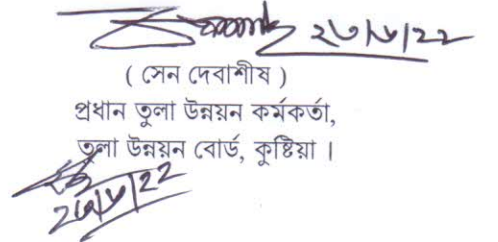 ২৩/৬/২২
( সেন দেবাশীষ )
প্রধান তুলা উন্নয়ন কর্মকর্তা,
তুলা উন্নয়ন বোর্ড, কুষ্টিয়া ।
২৩/৬/২২